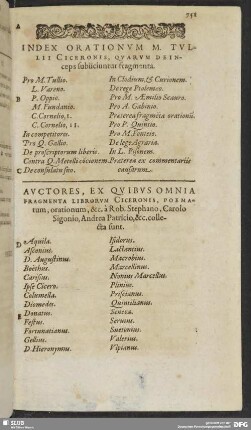 758
A
INDEX ORATIONVM M. TVL-
LII CICERONIS, QVARVM DEIN-
ceps subiiciuntur fragmenta.
Pro M. Tullio.
L. Vareno.
B P. Oppio.
M. Fundanio.
C. Cornelio, I.
C. Cornelio, II.
In competitores.
Pro Q. Gallio.
De proscriptorum liberis.
Contra Q. Metelli concionem.
C De consulatu suo.
In Clodium, & Curionem.
De rege Ptolemæo.
Pro M. Æmilio Scauro.
Pro A. Gabinio.
Præterea fragmēta orationū.
Pro P. Quintio.
Pro M. Fonteio.
De lege Agraria.
In L. Pisonem.
Præterea ex commentariis
causarum
AVCTORES, EX QVIBVS OMNIA
FRAGMENTA LIBRORVM CICERONIS, POEMA-
tum, orationum, &c. à Rob. Stephano, Carolo
Sigonio, Andrea Patricio, &c. colle-
cta sunt.
D Aquila.
Asconius.
D. Augustinus.
Boëthus.
Carisius.
Ipse Cicero.
Columella.
Diomedes.
Donatus.
Festus.
Fortunatianus.
Gellius.
D. Hieronymus.
Isidorus.
Lactantius.
Macrobius.
Marcellinus.
Nonius Marcellus.
Plinius.
Priscianus.
Quintilianus.
Seneca.
Seruius.
Suetonius.
Valerius.
Vlpianus.
SLUB